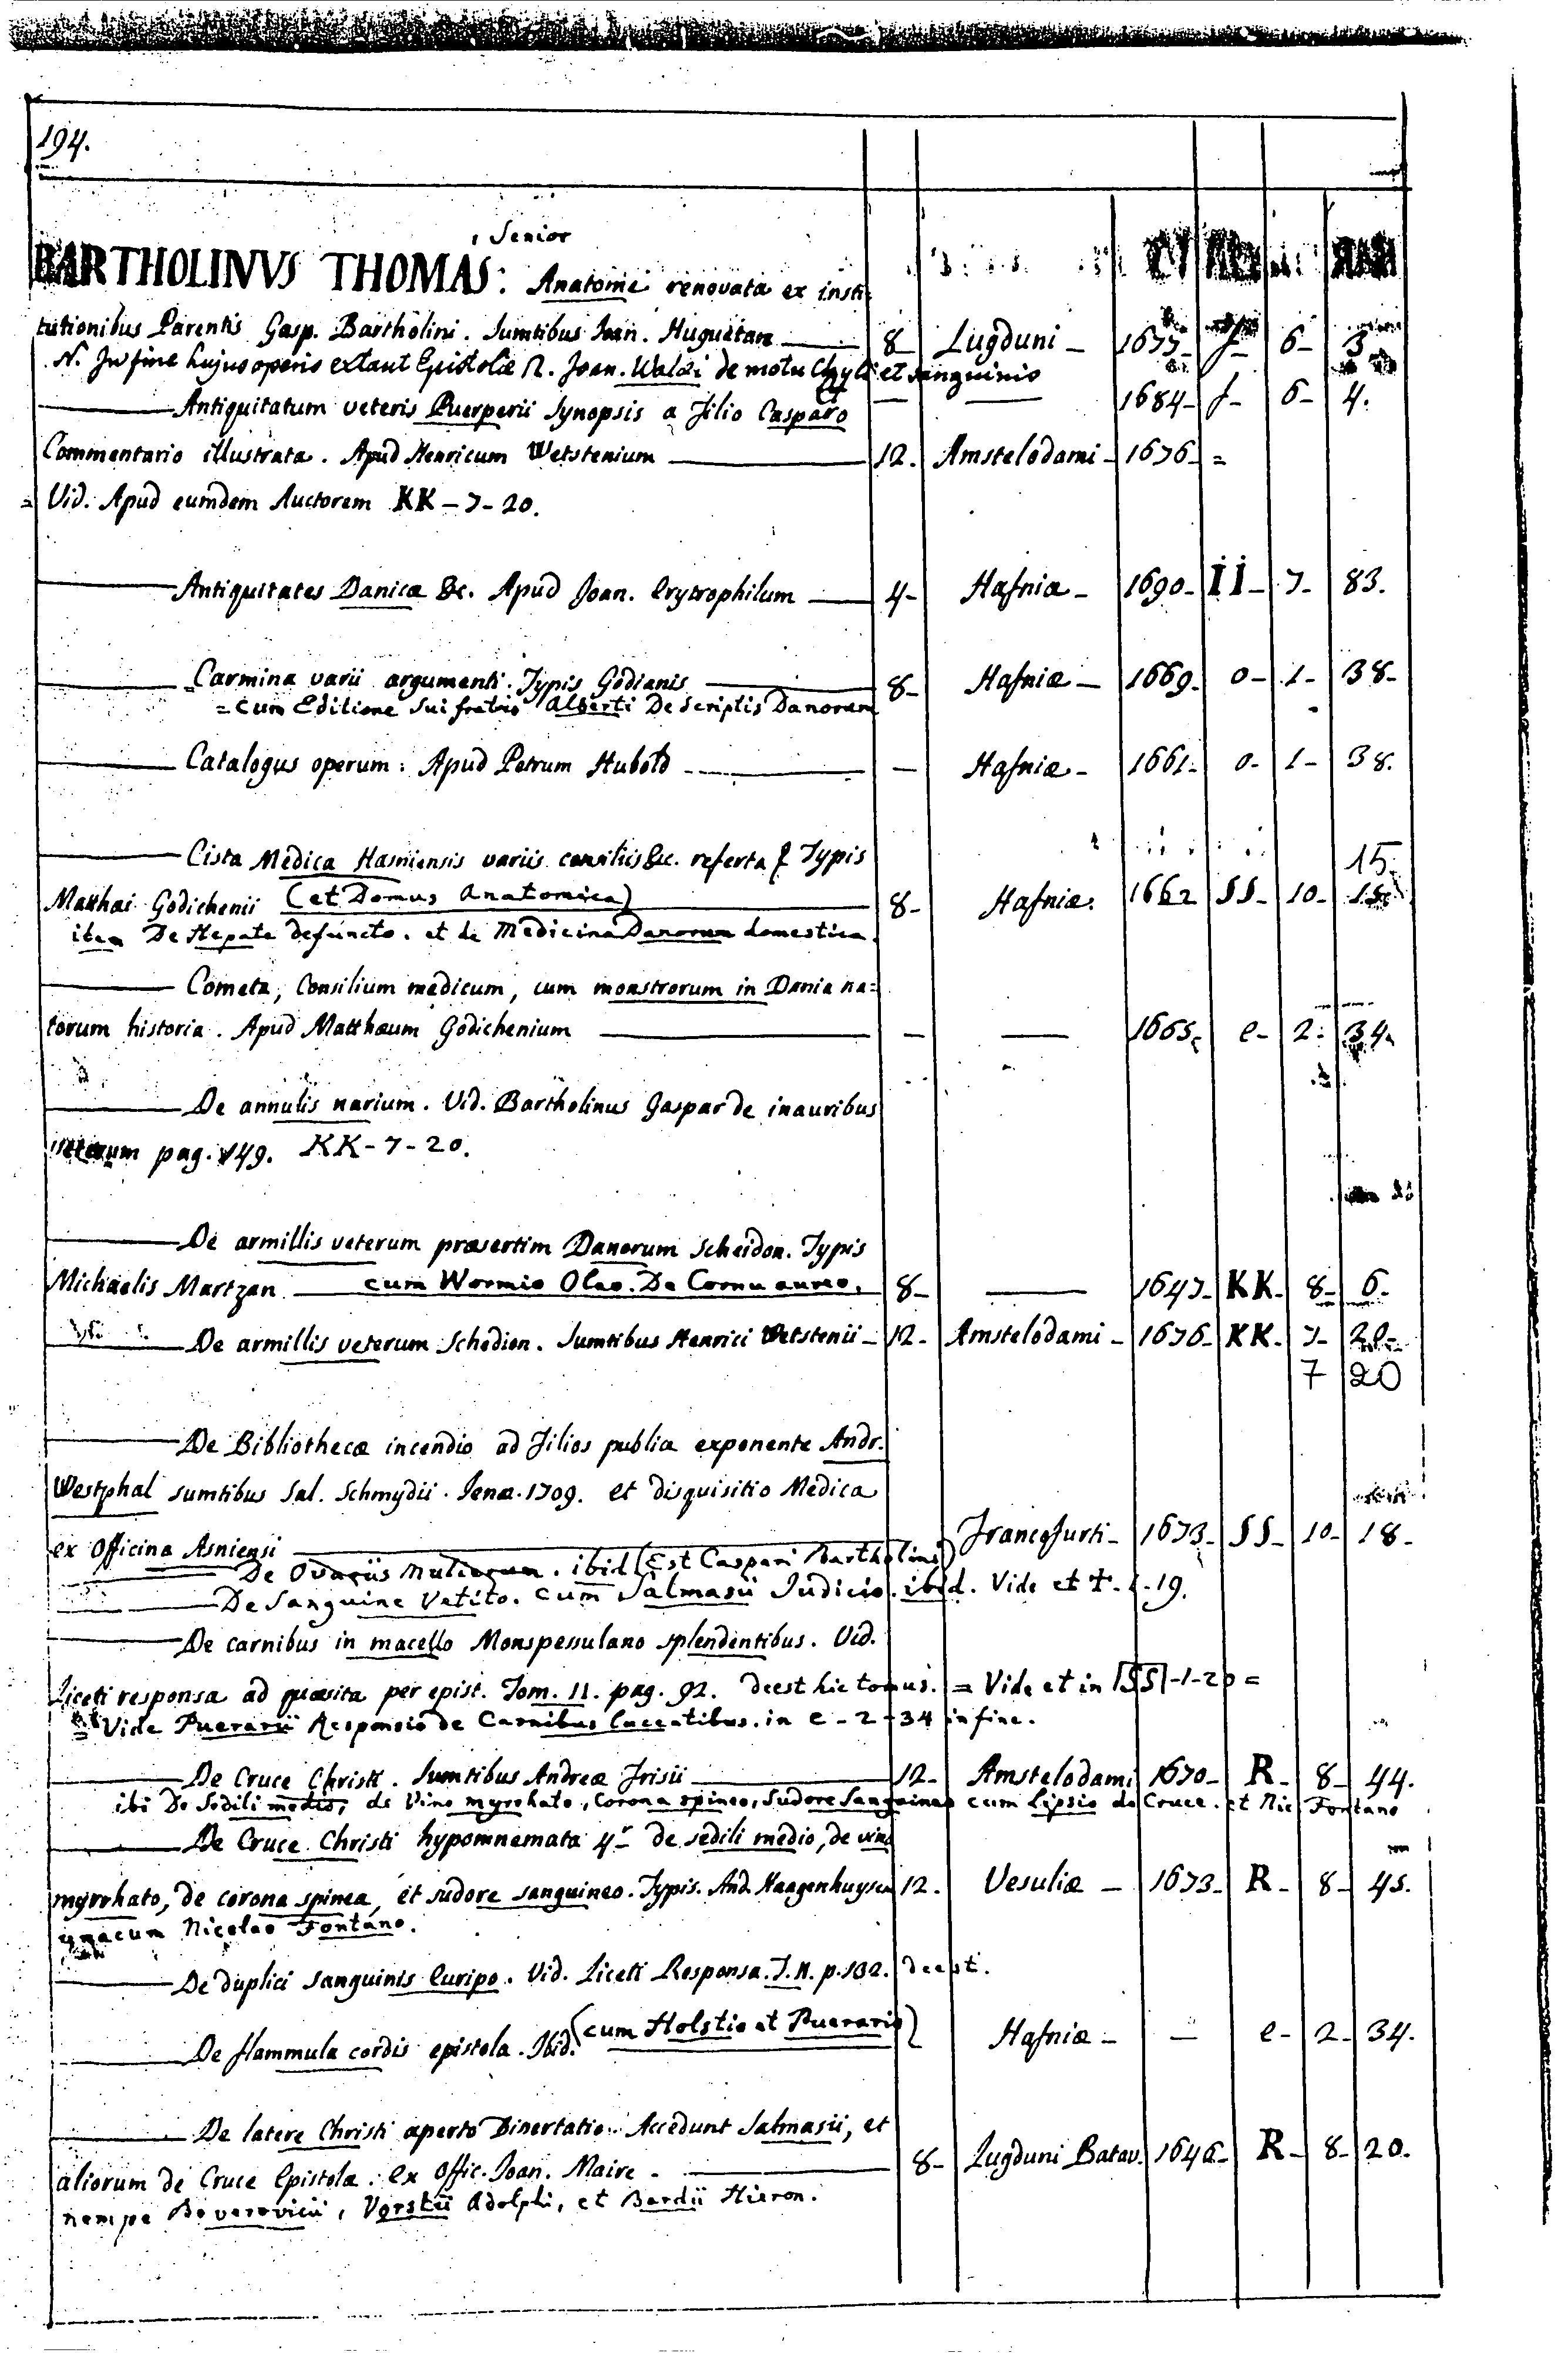 194.
, Senior
BARTHOLINVS THOMAS: Anatome renovata ex insti=
tutionibus Parentis Gasp. Bartholini. Sumtibus Joan. Huguetan 8- Lugduni - 1677- f- 6- 3
N. In fine hujus operis extant Epistolæ 2. Joan. Walæi de motu Chyli et sanguinis
Antiquitatum veteris Puerperii Synopsis a Filio Casparo — — 1684- f- 6- 4.
Commentario illustrata. Apud Henricum Wetstenium 12. Amstelodami - 1676- =
= Vid. Apud eumdem Auctorem KK-7-20.
Antiquitates Danicæ &c. Apud Joan. Erytrophilum 4- Hafniæ - 1690- II- 7- 83.
Carmina varii argumenti. Typis Godianis 8- Hafniæ - 1669. o- 1- 38-
= cum Editione sui fratris Alberti De Scriptis Danorum
Catalogus operum: Apud Petrum Hubold — Hafniæ - 1661- o- 1- 38.
Cista Medica Hafniensis variis consiliis &c. referta Typis 15.
Matthai Godichenii (et Domus Anatomica) 8- Hafniæ. 1662 SS- 10- 15.
item De Hepate defuncto. et de Medicina Danorum domestica.
Cometa, Consilium medicum, cum monstrorum in Dania na=
torum historia. Apud Matthæum Godichenium — — 1665. e- 2- 34.
De annulis narium. Vid. Bartholinus Gaspar de inauribus
veterum pag. 149. KK-7-20.
De armillis veterum præsertim Danorum Schedion. Typis
Michaelis Martzan cum Wormio Olao. De Cornu aureo. 8- — 1647- KK- 8- 6-
De armillis veterum Schedion. Sumtibus Henrici Wetstenii - 12- Amstelodami - 1676- KK- 7- 20-
7 20
De Bibliothecæ incendio ad Filios publia exponente Andr.
Westphal sumtibus Sal. Schmydii. Jenæ. 1709. et disquisitio Medica
ex Officina Asniensi Francofurti- 1673- SS- 10- 18-
De Ovariis Mulierum. ibid (Est Caspari Bartholini)
De Sanguine Vetito. cum Salmasii Judicio. ibid. Vide et 19.
De carnibus in macello Monspessulano splendentibus. Vid.
Liceti responsa ad quæsita per epist. Tom. 11. pag. 92. deest hic tomus. = Vide et in SS-1-20 =
= Vide Puerarii Responsio de Carnibus lucentibus. in e-2-34 in fine.
De Cruce Christi. Sumtibus Andreæ Frisii 12- Amstelodami 1670- R- 8- 44.
ibi De Sedili medio, de Vino myrrhato, Corona spinea, Sudore Sanguineo cum Lipsio de Cruce. et Nic Fontano
De Cruce Christi hypomnemata 4r de sedili medio, de vino
myrrhato, de corona spinea, et sudore sanguineo. Typis. And. Haagenhuysen 12. Vesuliæ - 1673- R- 8- 45.
unacum Nicolao Fontano.
De duplici sanguinis Euripo. Vid. Liceti Responsa. T. II. p. 132. deest.
De flammula cordis epistola. Ibid. (cum Holstio et Puerario) Hafniæ - — e- 2- 34.
De latere Christi aperto Dissertatio. Accedunt Salmasii, et
aliorum de Cruce Epistolæ. Ex Offic. Joan. Maire - 8- Lugduni Batav. 1646- R- 8- 20.
nempe Beverovicii, Vorstii Adolphi, et Bardii Hieron.